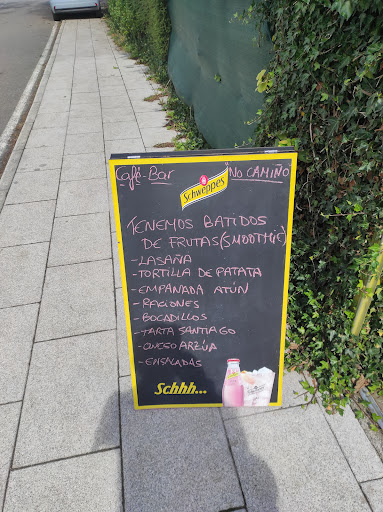 Café-Bar Schweppes No CAMIÑO
TENEMOS BATIDOS
DE FRUTAS (SMOOTHIE)
- LASAÑA
- TORTILLA DE PATATA
- EMPANADA ATÚN
- RACIONES
- BOCADILLOS
- TARTA SANTIAGO
- QUESO ARZÚA
- ENSALADAS
Schhh...